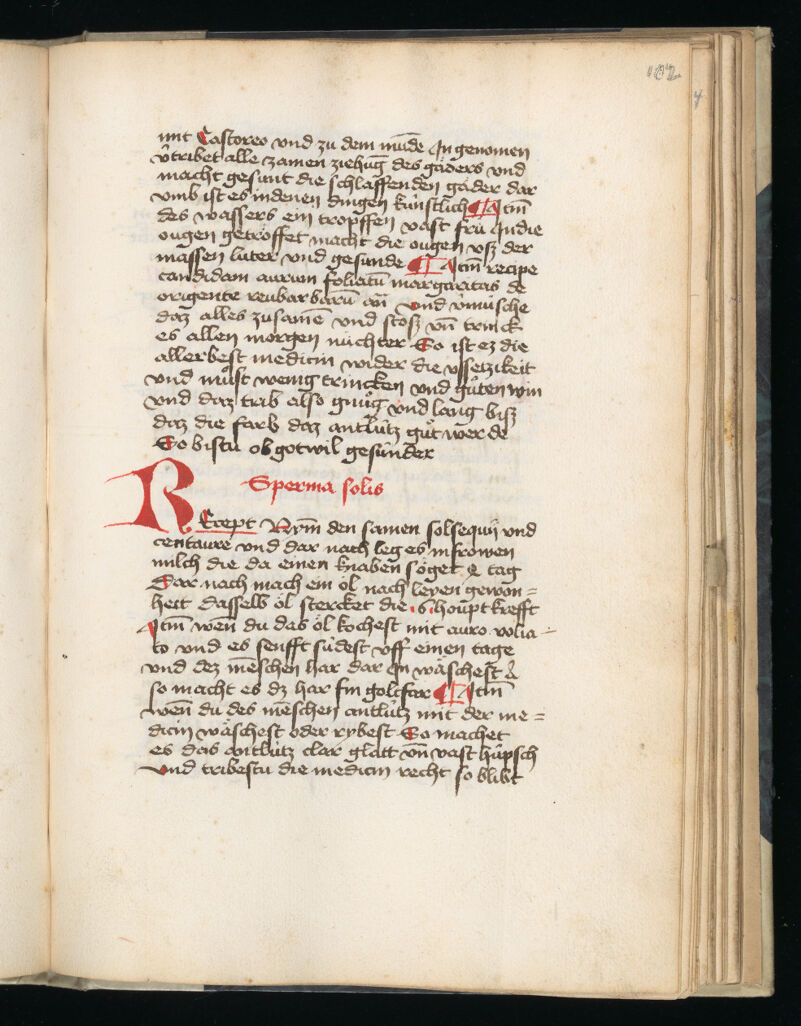 102
4
mit Castoreo vnd zu dem mūde In genomen
v̄tribet alle zamen ziehūg des gäders vnd
macht gesunt die schlaffenden gäder dar
vmb ist es in denen dingen künstlich ¶ Itm̄
des wassers ein tropffen vast frü In die
ougen getröffet macht die ougen vsz der
massen luter vnd gesunde ¶ Itm̄ recipe
candidam aurum foliatū margaritas de
origente reubarbarū an̄ vnd v̄müsche
daz alles zusamē vnd stosz vn̄ trinck
es allen morgen nüchter So ist ez die
allerbest medicin wider die vssetzikeit
vnd můst wenig trincken vnd gůten win
vnd daz trib also gnůg vnd lang bisz
daz die farb daz antlütz gůt werde
So bistu ob got wil gesünder
Sperma solis
REcept Nym̄ den samen solsequij vnd
centaure vnd dar nach leg es in frowen
milch die da einen knaben söget tag
Dar nach mach ein öl nach leyen gewon=
heit Dasselb öl stercket die houptkrefft
Itm̄ wen̄ du das öl kochest mit auro volia-
to vnd es senfft südest vff einen tage
vnd dez mēschen har dar In wäschest
so macht es dz har fin goltfar ¶ Itm̄
wen̄ du des mēschen antlütz mit der me=
dicin wäschest oder rybest So machet
es das antlütz clar glatt vn̄ vast hüpsch
vnd tribestu die medicin recht so blibt